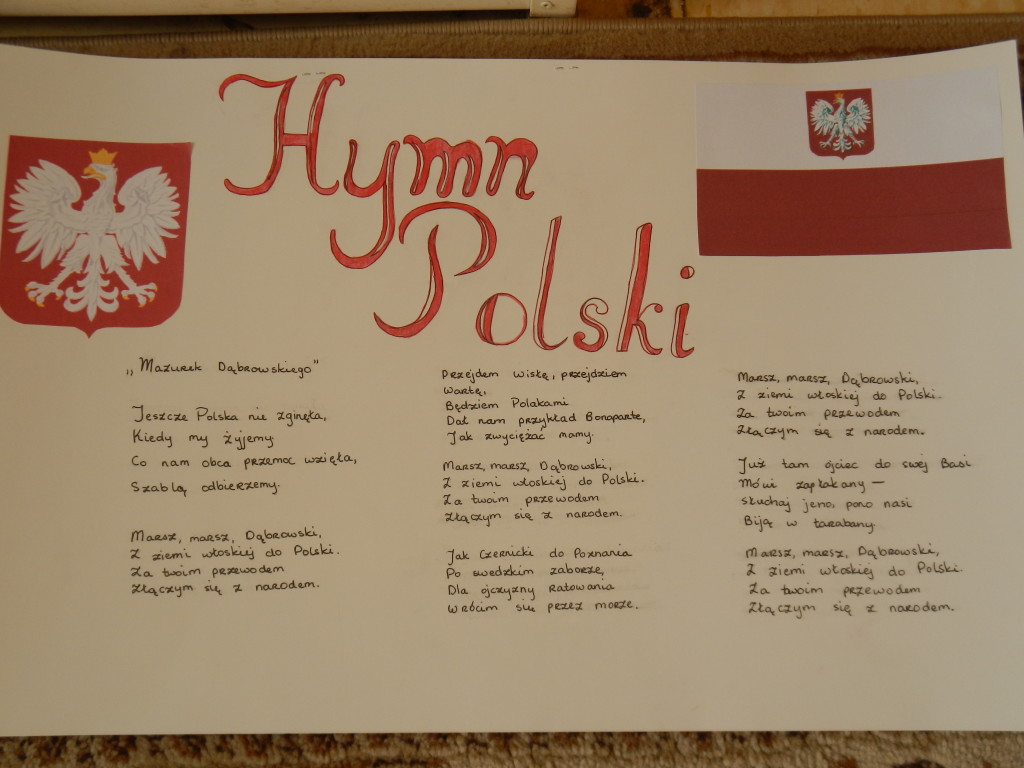 Hymn
Polski
„Mazurek Dąbrowskiego"
Jeszcze Polska nie zginęła,
Kiedy my żyjemy.
Co nam obca przemoc wzięła,
Szablą odbierzemy.
Marsz, marsz, Dąbrowski,
Z ziemi włoskiej do Polski.
Za twoim przewodem
Złączym się z narodem.
Przejdem Wisłę, przejdziem
Wartę,
Będziem Polakami
Dał nam przykład Bonaparte,
Jak zwyciężać mamy.
Marsz, marsz, Dąbrowski,
Z ziemi włoskiej do Polski.
Za twoim przewodem
Złączym się z narodem.
Jak Czernicki do Poznania
Po swedzkim zaborze,
Dla ojczyzny Ratowania
Wrócim się przez morze.
Marsz, marsz, Dąbrowski,
Z ziemi włoskiej do Polski.
Za twoim przewodem
Złączym się z narodem.
Już tam ojciec do swej Basi
Mówi zapłakany —
słuchaj jeno, pono nasi
Biją w tarabany
Marsz, marsz, Dąbrowski,
Z ziemi włoskiej do Polski.
Za twoim przewodem
Złączym się z narodem.